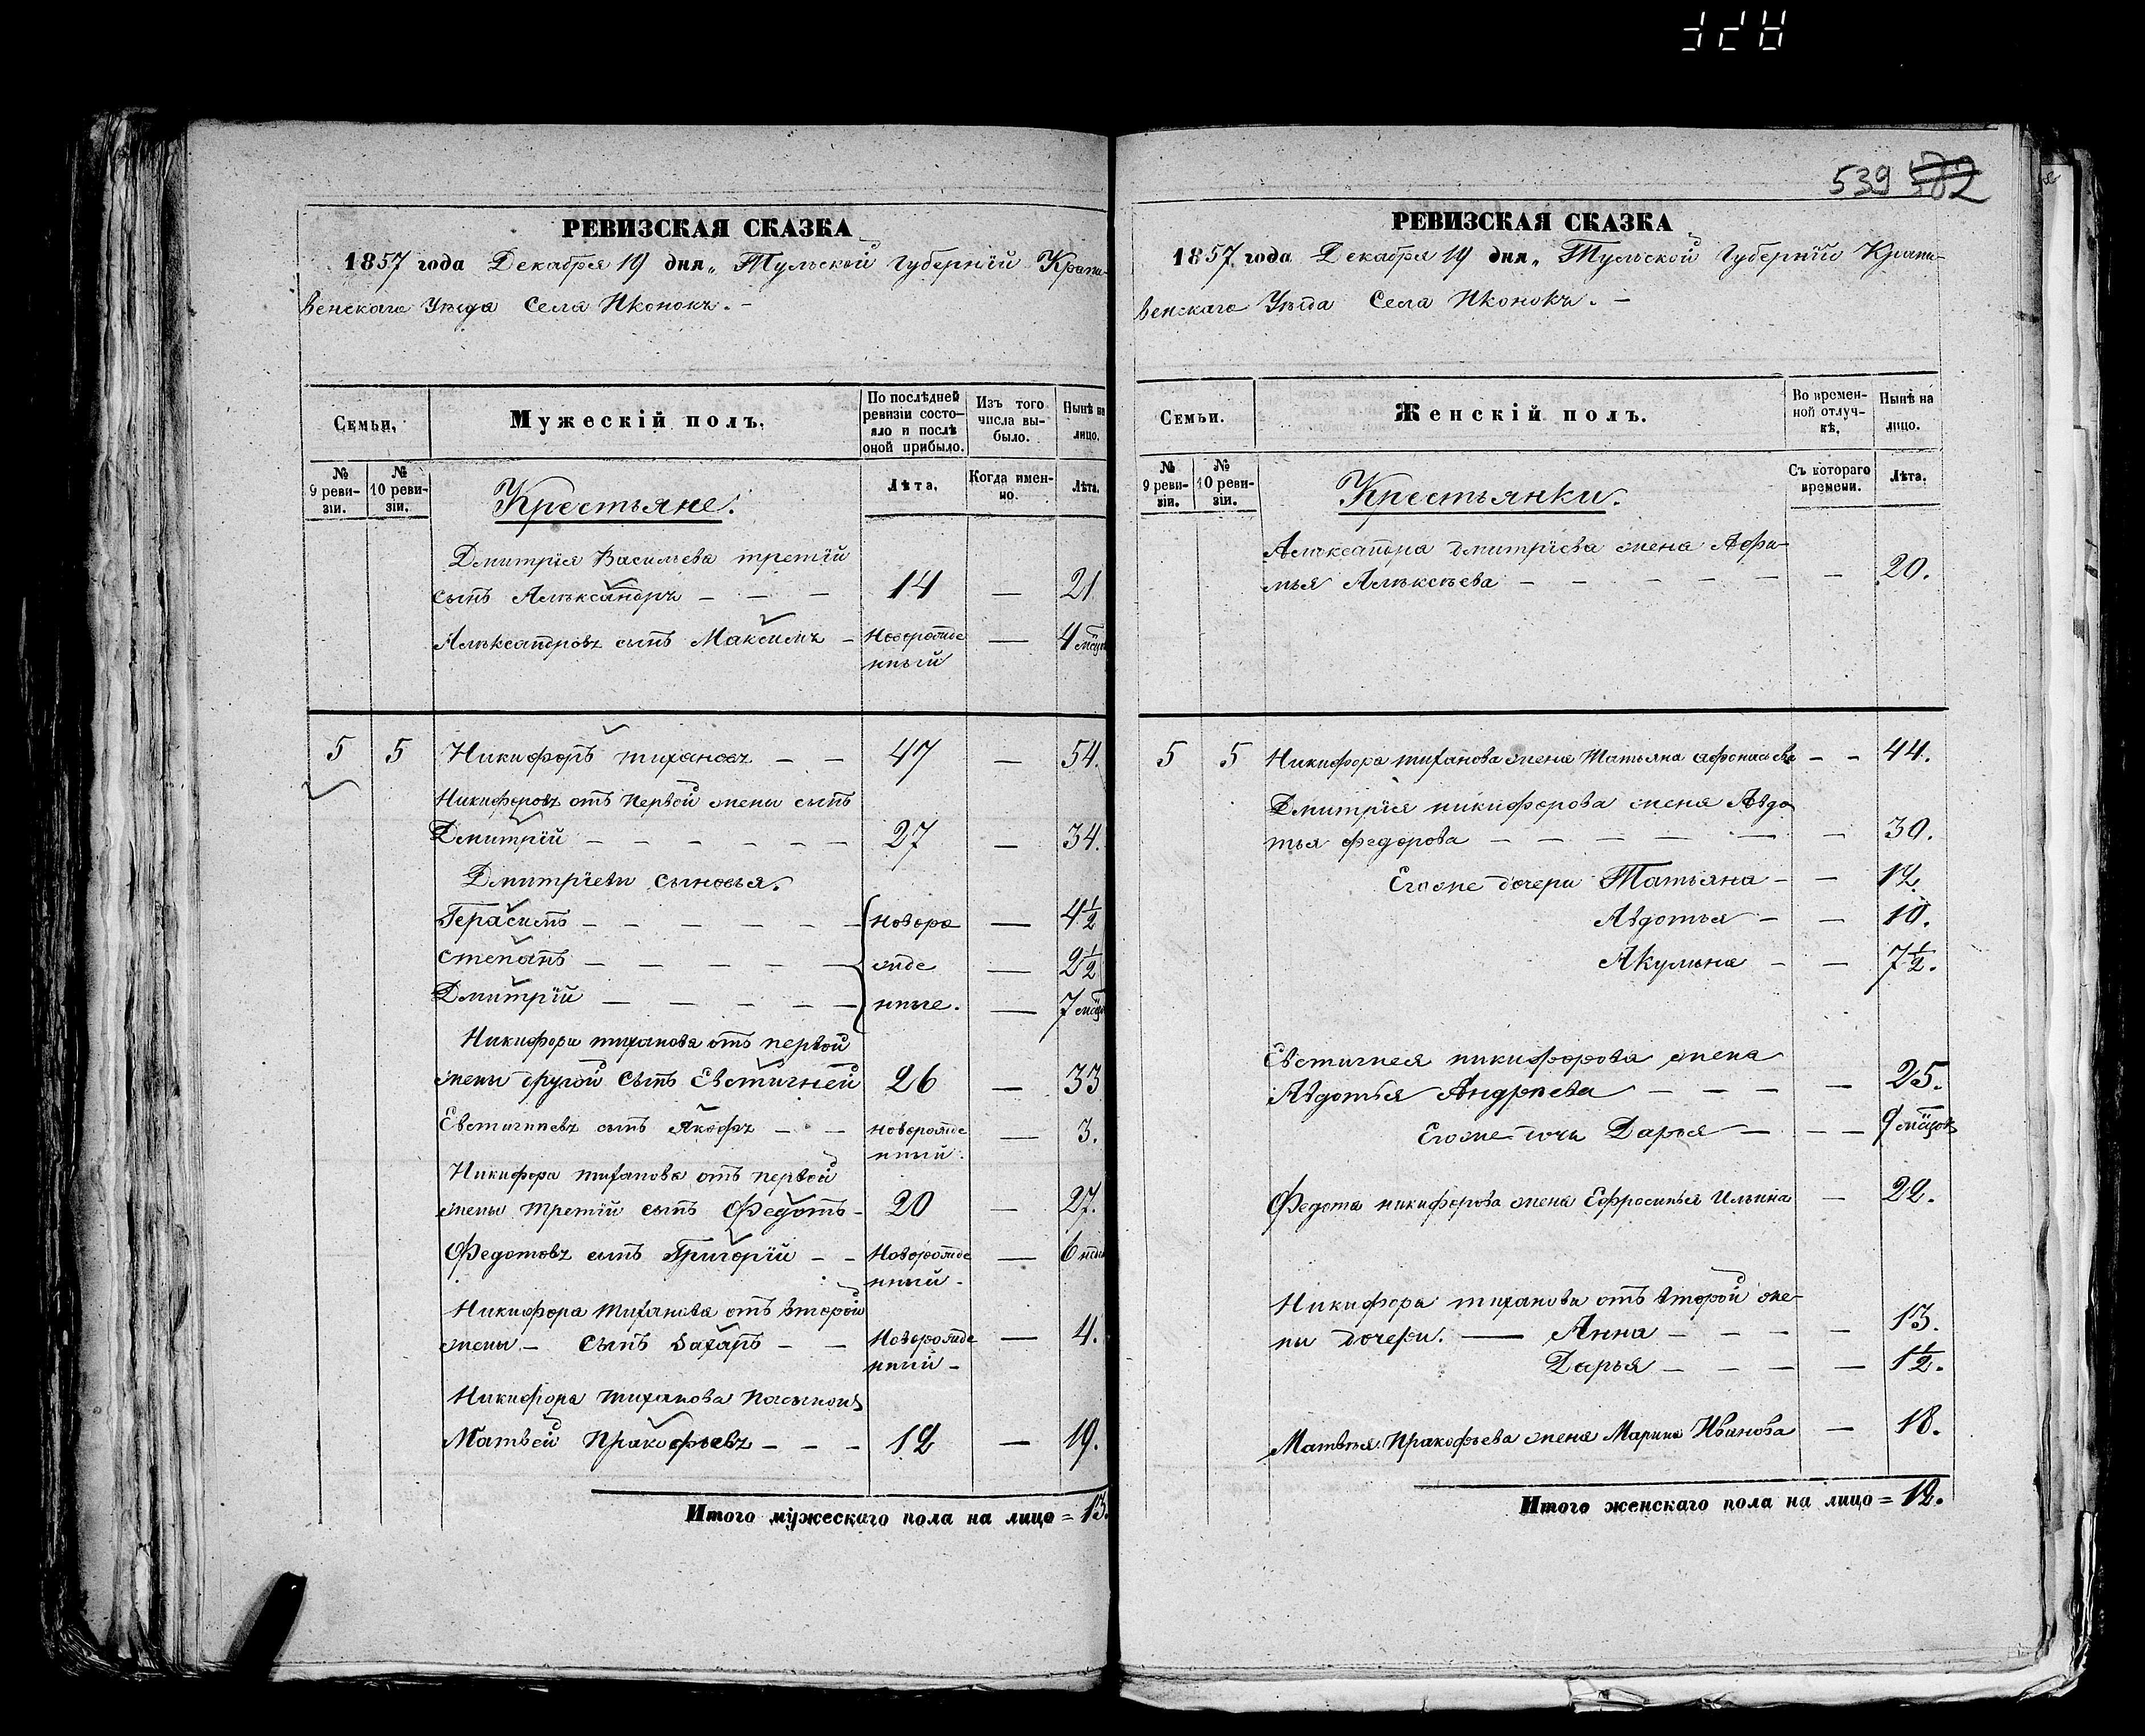 539 582
РЕВИЗСКАЯ СКАЗКА
1857 года Декабря 19 дня„ Тульской Губернiи Крапи-
венскаго Уѣзда Села Иконокъ. –
Семьи,
Мужескiй полъ.
По послѣдней
ревизiи состо-
яло и послѣ
оной прибыло.
Изъ того
числа вы-
было.
Нынѣ на
лицо.
№
9 реви-
зiи.
№
10 реви-
зiи.
Крестьяне.
Лѣта,
Когда имен-
но.
Лѣта.
Дмитрiя Васильева третiй
сынъ Алѣксандръ – – – 14 — 21
Алѣксандровъ сынъ Максимъ – Новорожде — 4 мѣсц
нный
5 5 Никифоръ тихановъ – – 47 — 54.
Никифоровъ отъ первой жены сынъ
Дмитрiй – – – – – – 27 — 34.
Дмитрiевы сыновья.
Герасимъ – – – – – – новоро — 4½
степанъ – – – – – жде — 2½
Дмитрiй – – – – – нные. — 7 мѣсц
Никифора тиханова отъ первой
жены другой сынъ Евстигней 26 — 33
Евстигневъ сынъ Якофъ – – новорожде — 3.
нный.
Никифора тиханова отъ первой
жены третiй сынъ Федотъ – 20 — 27.
Федотовъ сынъ Григорiй – – Новорожде — 6
нный –
Никифора тиханова отъ второй
жены – Сынъ Захаръ – – Новорожде — 4.
нный –
Никифора тиханова пасынокъ
Матвей Пракофьевъ – – – 12 — 19.
Итого мужескаго пола на лицо = 13.
РЕВИЗСКАЯ СКАЗКА
1857 года Декабря 19 дня„ Тульской Губернiи Крапи-
венскаго Уѣзда Села Иконокъ. –
Семьи.
Женскiй полъ.
Во времен-
ной отлуч-
кѣ,
Нынѣ на
лицо.
№
9 реви-
зiи.
№
10 реви-
зiи.
Крестьянки.
Съ котораго
времени.
Лѣта.
Алѣксандра дмитрiева жена Афи-
мья Алѣксѣева – – – – – — 20.
5 5 Никифора тиханова жена Татьяна афонасьева – – 44.
Дмитрiя никифорова жена Авдо
тья федорова – – – – — — 30.
Егоже дочери Татьяна – – 12
Авдотья – – 10.
Акулина – – 7½.
Евстигнея никифорова жена
Авдотья Андрѣева – – – — 25.
Егоже дочь Дарья – – – 9 мѣсцовъ
Федота никифорова жена Ефросинья Ильина – 22.
Никифора тиханова отъ второй же-
ны дочери. — Анна – – – – 13.
Дарья – – – — 1½.
Матвѣя Пракофьева жена Марина Иванова — 18.
Итого женскаго пола на лицо = 12.